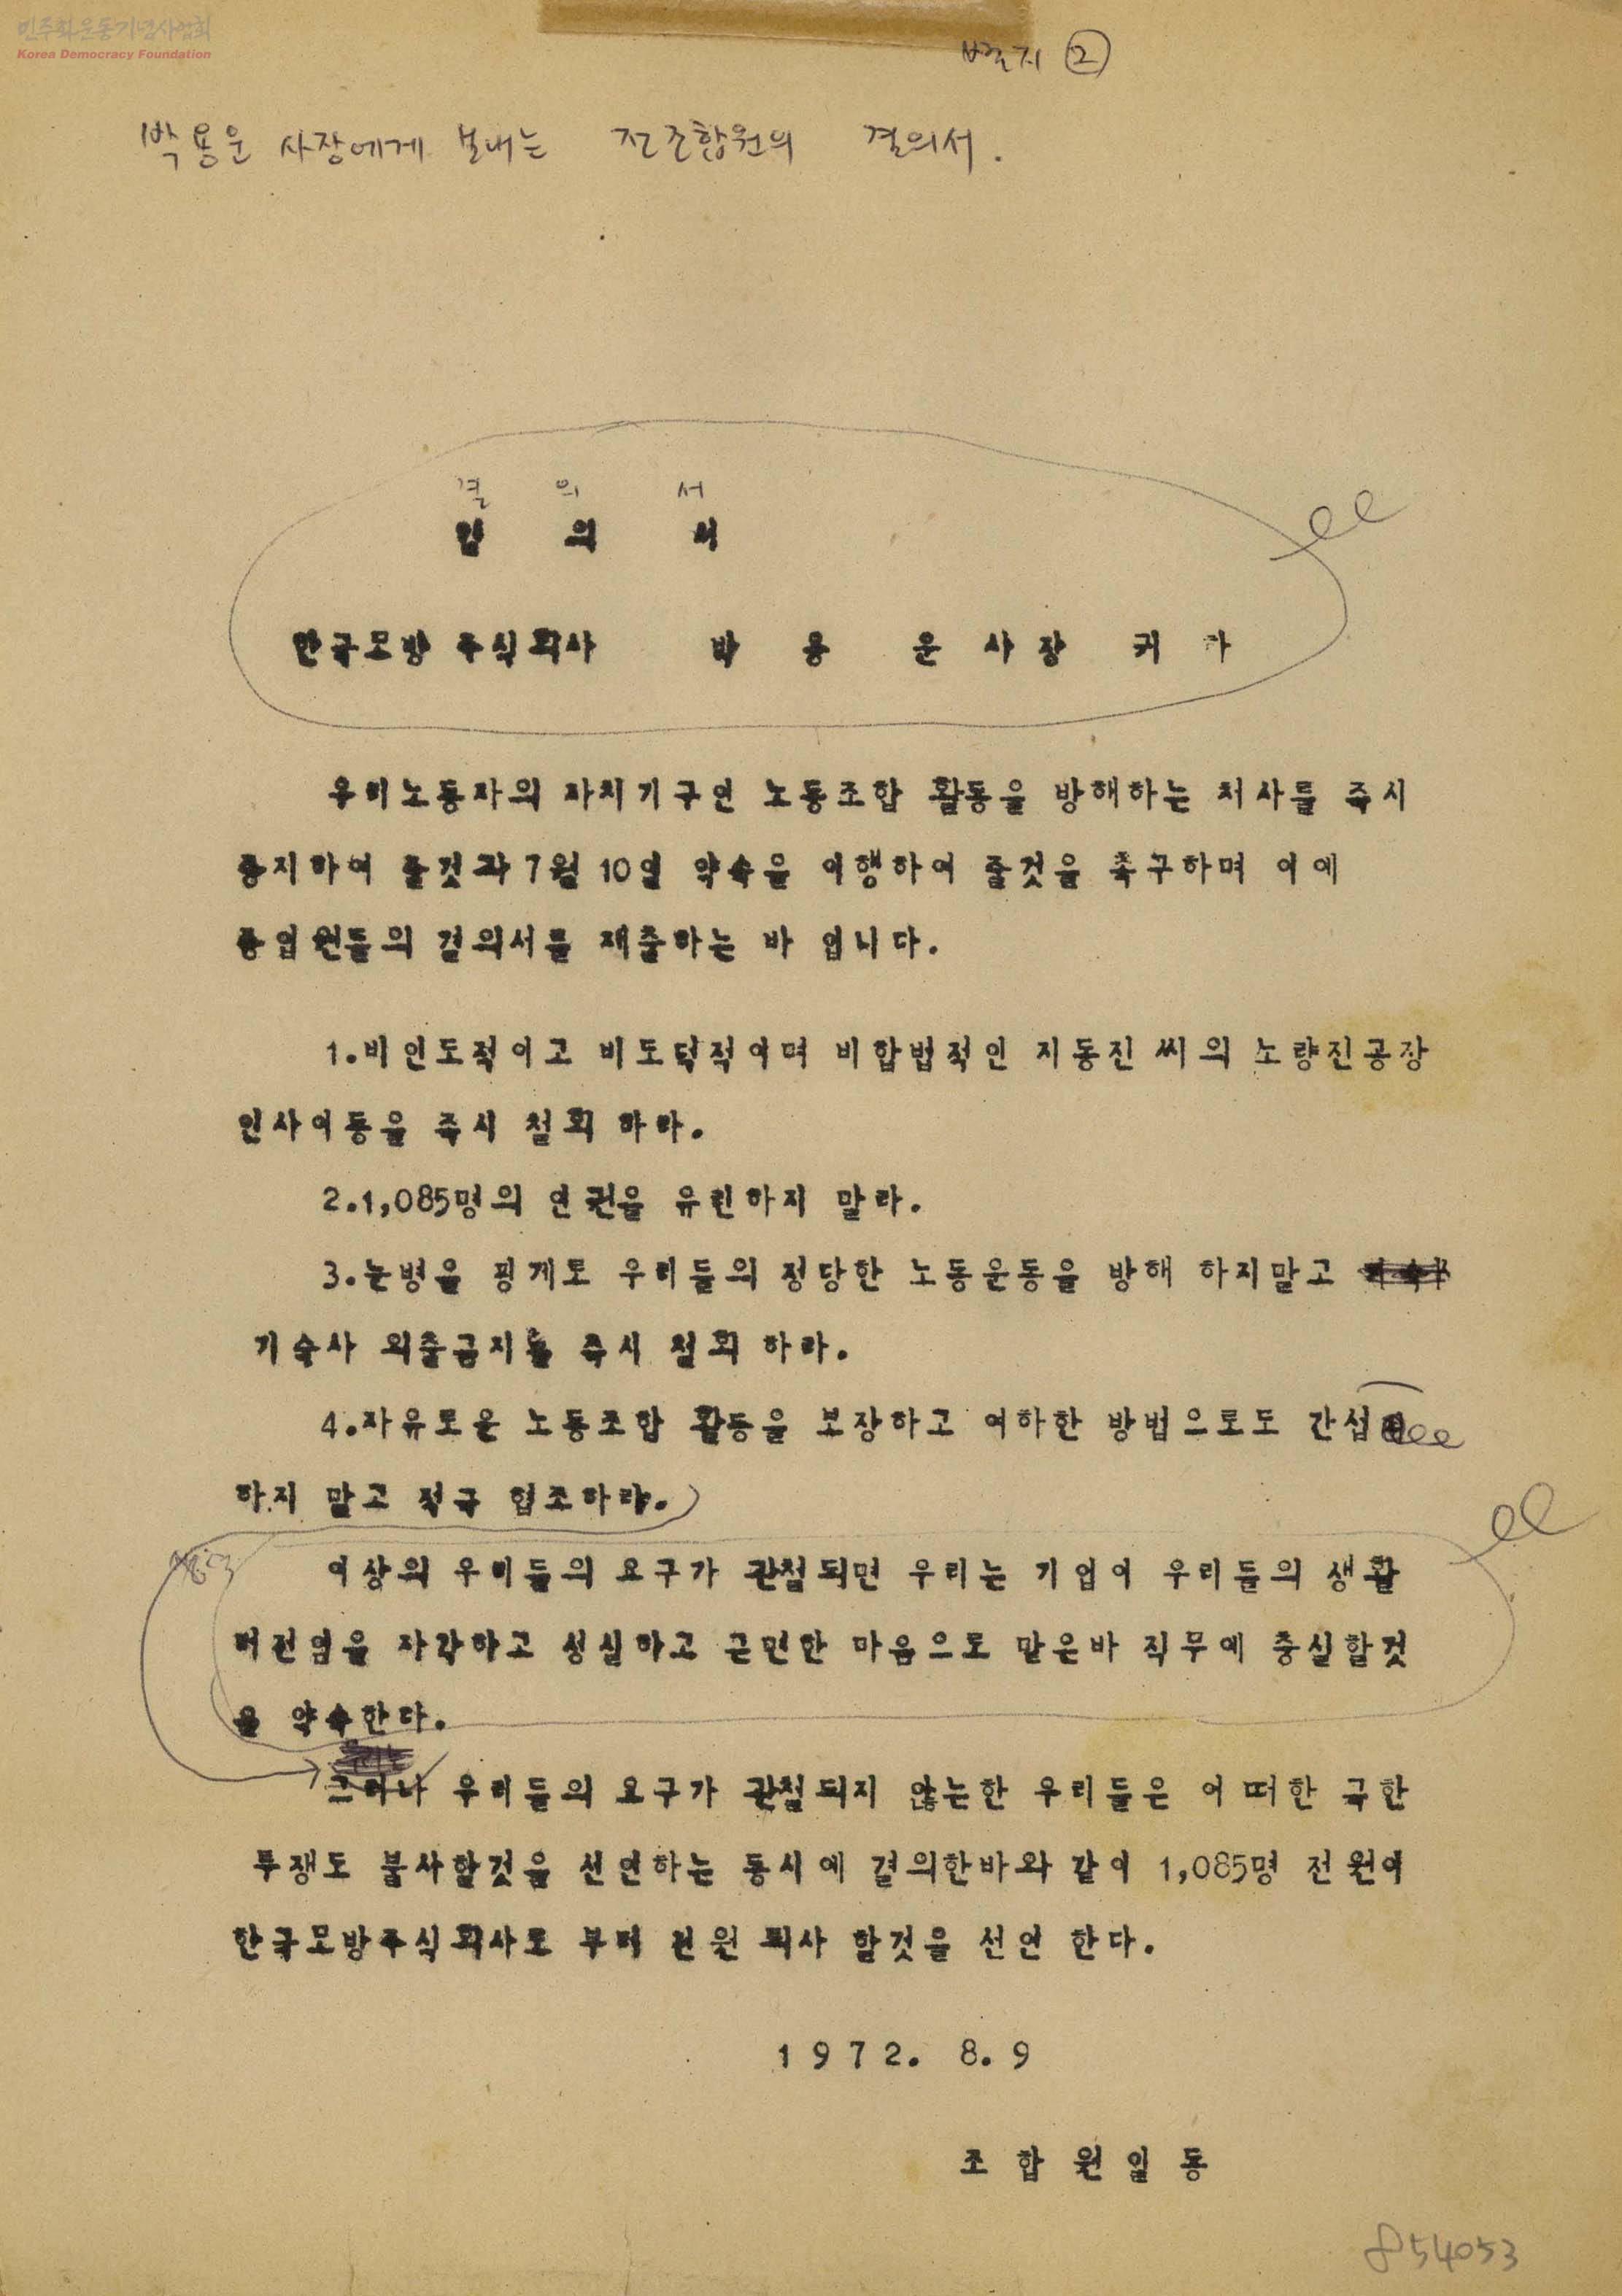 민주화운동기념사업회
Korea Democracy Foundation
별지 ②
박용운 사장에게 보내는 전조합원의 결의서.
결 의 서
의 서
한국모방 주식회사 박 용 운 사 장 귀 하
우리노동자의 자치기구인 노동조합 활동을 방해하는 처사를 즉시
중지하여 줄것과 7월 10일 약속을 이행하여 줄것을 촉구하며 이에
종업원들의 결의서를 제출하는 바 입니다.
1.비인도적이고 비도덕적이며 비합법적인 지동진 씨의 노량진공장
인사이동을 즉시 철회 하라.
2.1,085명의 인권을 유린하지 말라.
3.눈병을 핑계로 우리들의 정당한 노동운동을 방해 하지말고
기숙사 외출금지를 즉시 철회 하라.
4.자유로운 노동조합 활동을 보장하고 여하한 방법으로도 간섭
하지 말고 적극 협조하라.
이상의 우리들의 요구가 관철되면 우리는 기업이 우리들의 생활
터전임을 자각하고 성실하고 근면한 마음으로 맡은바 직무에 충실할것
을 약속한다.
그러나 우리들의 요구가 관철되지 않는한 우리들은 어떠한 극한
투쟁도 불사할것을 선언하는 동시에 결의한바와 같이 1,085명 전원이
한국모방주식회사로 부터 전원 퇴사 할것을 선언 한다.
1972. 8. 9
조 합 원 일 동
854053